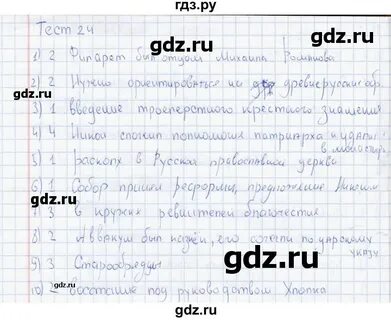 gdz.ru
Тест 24
1) 2 Филарет был отцом Михаила Романова
2) 2 Нужно ориентироваться на древнерусские обр.
3) 1 введение троеперстного крестного знамения
4) 4 Никон сложил полномочия патриарха и удалился
в монастырь
5) 1 Раскол в Русской православной церкви
6) 1 Собор принял реформы, предложенные Никоном
7) 3 в кружек ревнителей благочестия
8) 2 Аввакум был казнён, его сожгли по царскому
указу
9) 3 Старообрядцы
10) 2 восстание под руководством Хлопка
gdz.ru
gdz.ru
gdz.ru
gdz.ru
gdz.ru